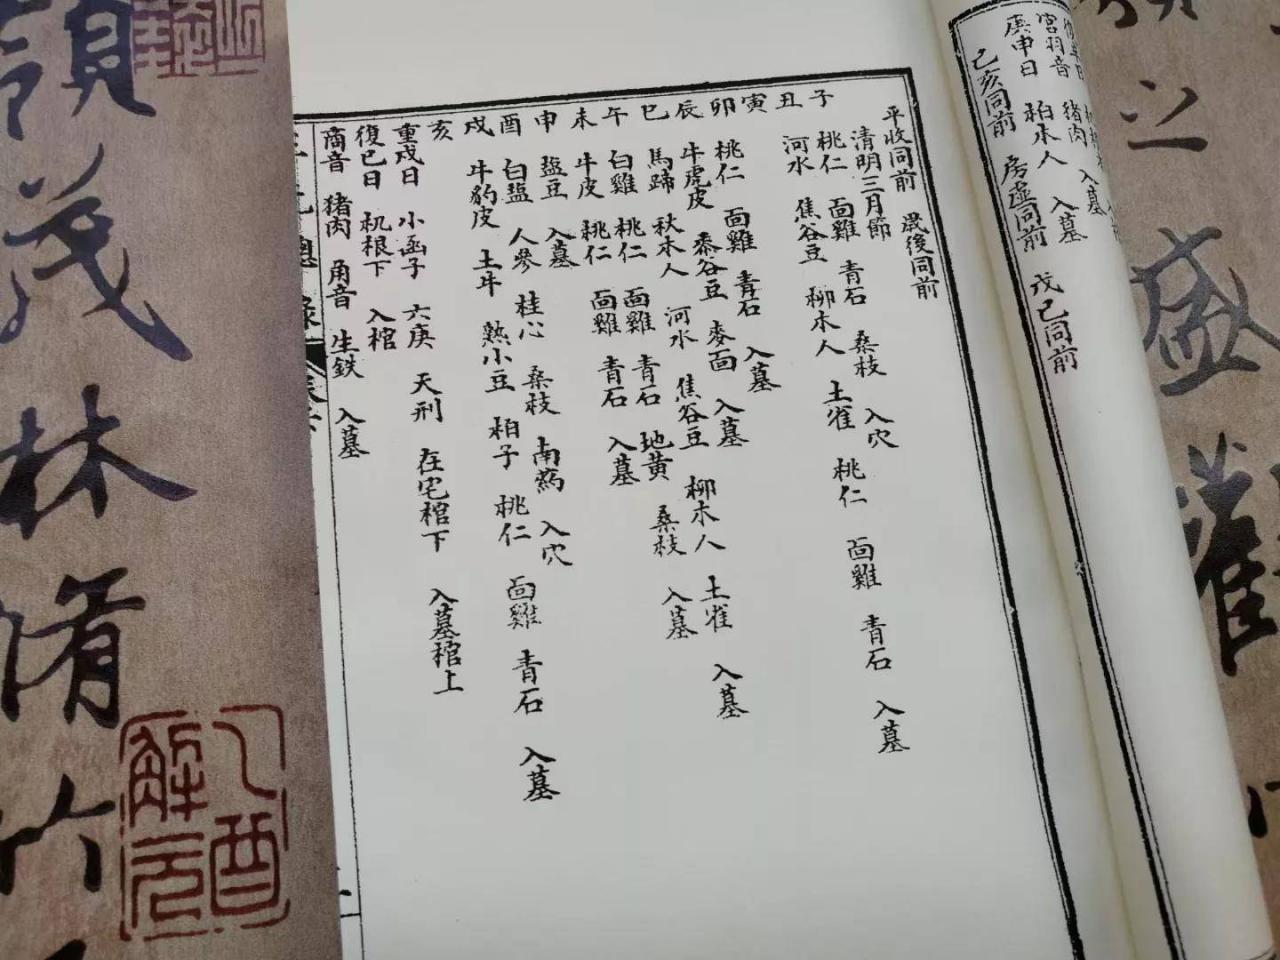 宮羽音 猪肉 入墓
庚申日 柏木人 入墓
己亥同前 房虛同前 戊己同前
平收同前 最後同前
清明三月節
子 桃仁 面雞 青石 桑枝 入穴
丑 河水 焦谷豆 柳木人 土雀 桃仁 面雞 青石 入墓
寅
卯 桃仁 面雞 青石 入墓
辰 牛虎皮 黍谷豆 麥面 入墓
巳 馬蹄 秋木人 河水 焦谷豆 柳木人 土雀 入墓
午 白雞 桃仁 面雞 青石 地黄 桑枝 入墓
未 牛皮 桃仁 面雞 青石 入墓
申 盐豆 入墓
酉 白盐 人參 桂心 桑枝 南药 入穴
戌 牛豹皮 土牛 熱小豆 柏子 桃仁 面雞 青石 入墓
亥
重戌日 小函子 六庚 天刑 在宅棺下 入墓棺上
復已日 机根下 入棺
商音 猪肉 角音 生鉄 入墓
之盛
領茂林脩竹
乙酉解元